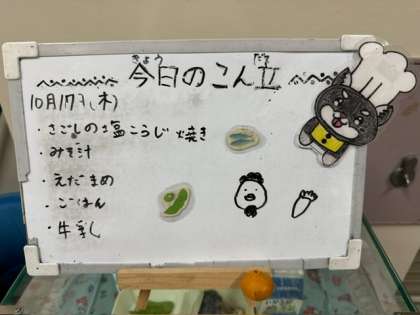 今日のこん立
10月17日(木)
・さごしの塩こうじ焼き
・みそ汁
・えだまめ
・ごはん
・牛乳